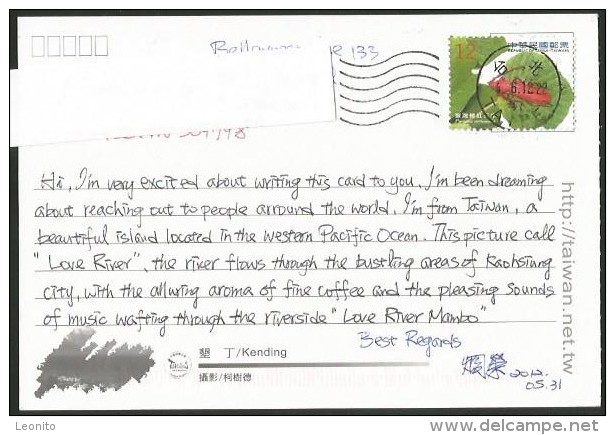 133
12 中華民國郵票
Hi, I'm very excited about writing this card to you. I'm been dreaming
about reaching out to people arround the world. I'm from Taiwan, a
beautiful island located in the western Pacific Ocean. This picture call
"Love River", the river flows through the bustling areas of Kaohsiung
city, with the alluring aroma of fine coffee and the pleasing sounds
of music wafting through the riverside "Love River Mambo"
Best Regards
2012.
05.31
墾 丁/Kending
攝影/柯樹德
http://taiwan.net.tw
Leonito
www.delcampe.net